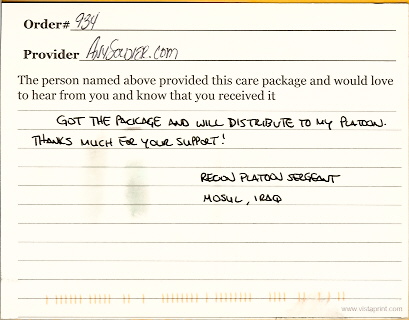 Order# 934
Provider AnySoldier.com
The person named above provided this care package and would love
to hear from you and know that you received it
GOT THE PACKAGE AND WILL DISTRIBUTE TO MY PLATOON.
THANKS MUCH FOR YOUR SUPPORT!
RECON PLATOON SERGEANT
MOSUL, IRAQ
www.vistaprint.com